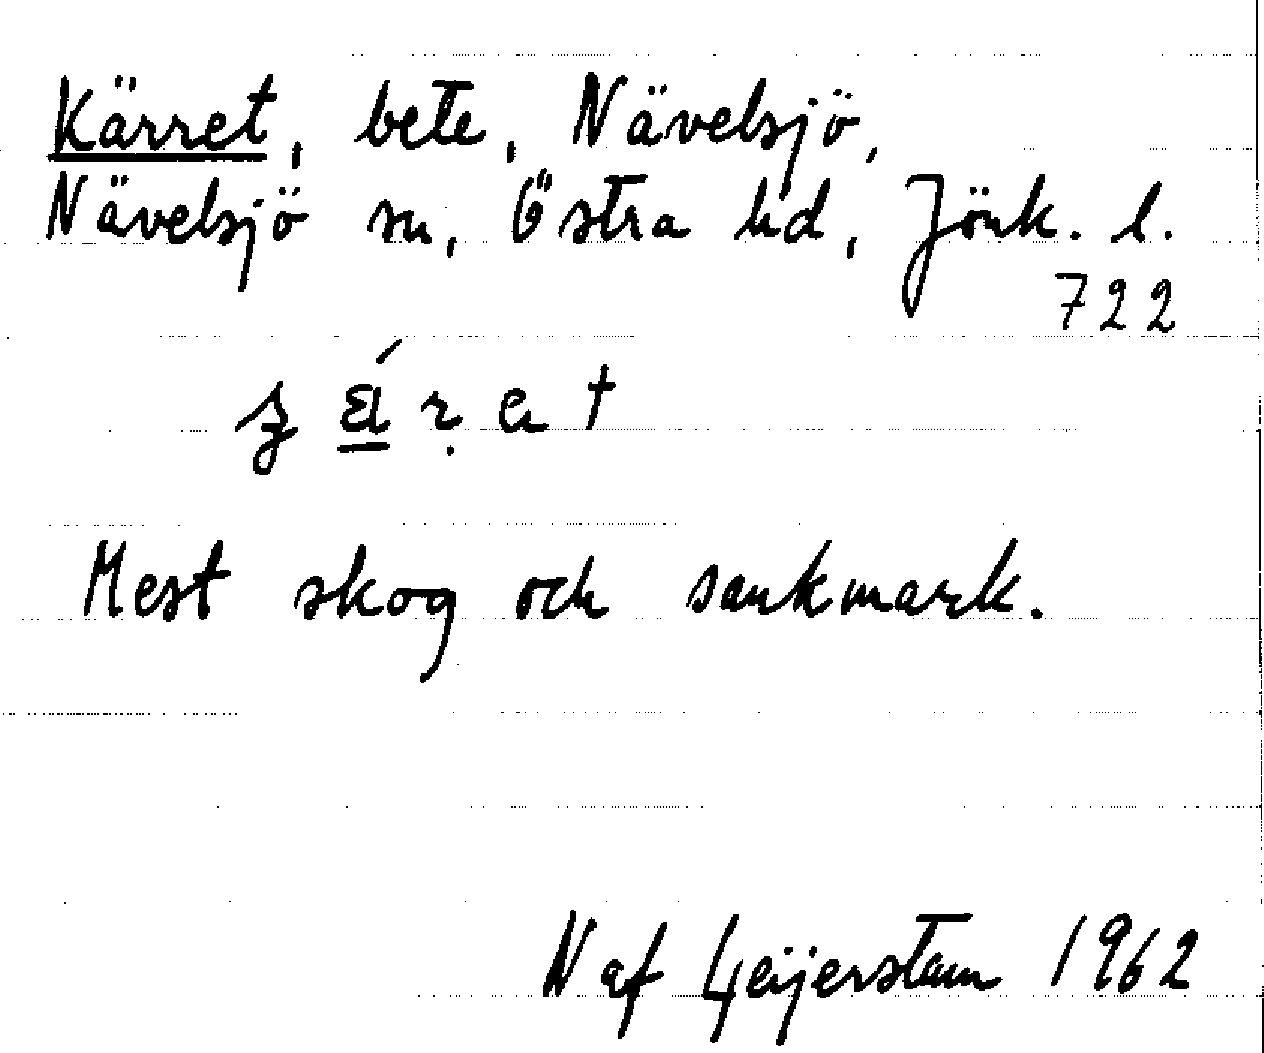 Kärret, bete, Nävelsjö,
Nävelsjö sn, Östra hd, Jönk. l.
722
Mest skog och sankmark.
N af Geijerstam 1962